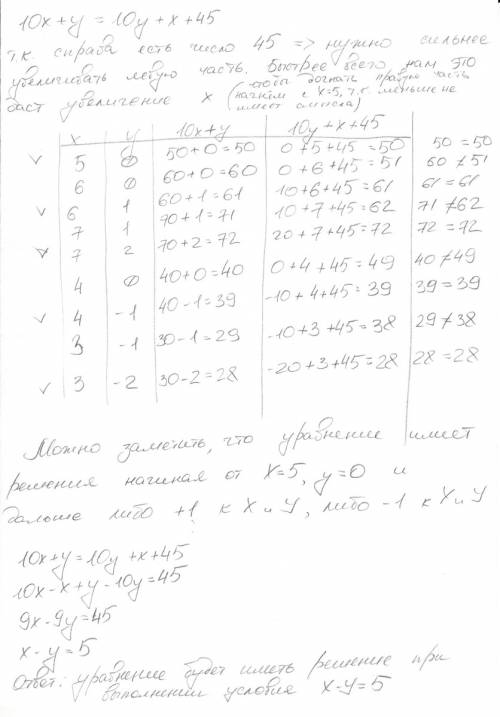 10x+y=10y+x+45
т.к. справа есть число 45 => нужно сильнее
увеличивать левую часть. Быстрее всего нам это
даст увеличение x (чтобы догнать правую часть
начнём с x=5, т.к. меньше не
имеет смысла)
x y 10x+y 10y+x+45
v 5 0 50+0=50 0+5+45=50 50=50
6 0 60+0=60 0+6+45=51 60≠51
v 6 1 60+1=61 10+6+45=61 61=61
7 1 70+1=71 10+7+45=62 71≠62
v 7 2 70+2=72 20+7+45=72 72=72
4 0 40+0=40 0+4+45=49 40≠49
v 4 -1 40-1=39 -10+4+45=39 39=39
3 -1 30-1=29 -10+3+45=38 29≠38
v 3 -2 30-2=28 -20+3+45=28 28=28
Можно заметить, что уравнение имеет
решения начиная от x=5, y=0 и
дальше либо +1 к X и У, либо -1 к X и У
10x+y=10y+x+45
10x-x+y-10y=45
9x-9y=45
x-y=5
Ответ: уравнение будет иметь решение при
выполнении условие x-y=5